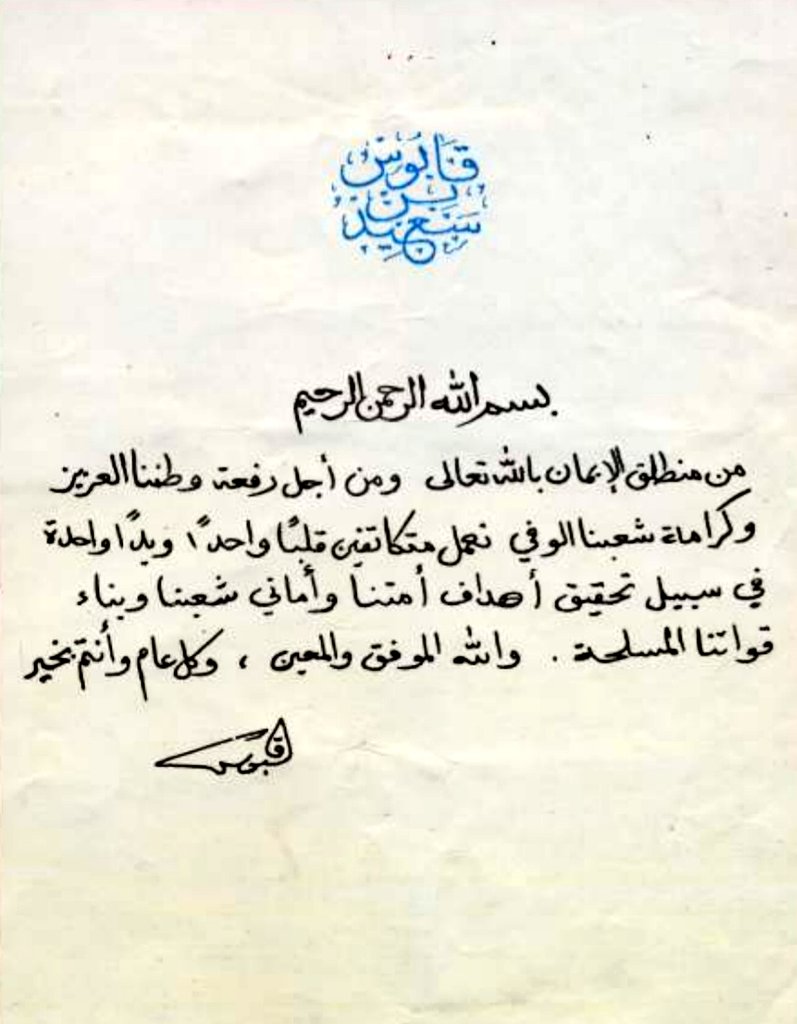 قابوس
بن
سعيد
بسم الله الرحمن الرحيم
من منطلق الإيمان بالله تعالى ومن أجل رفعة وطننا العزيز
وكرامة شعبنا الوفي نعمل متكاتفين قلبًا واحدًا ويدًا واحدة
في سبيل تحقيق أهداف أمتنا وأماني شعبنا وبناء
قواتنا المسلحة . والله الموفق والمعين ، وكل عام وأنتم بخير
قابوس